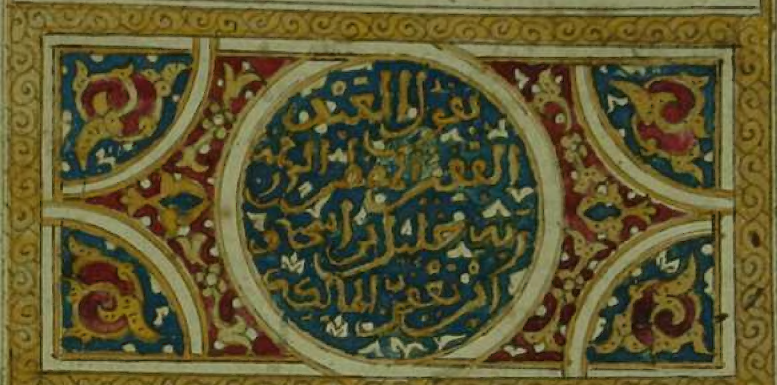 يقول العبد
الفقير المضطر لرحمة
ربه خليل بن اسحاق
ابن يعقوب المالكي